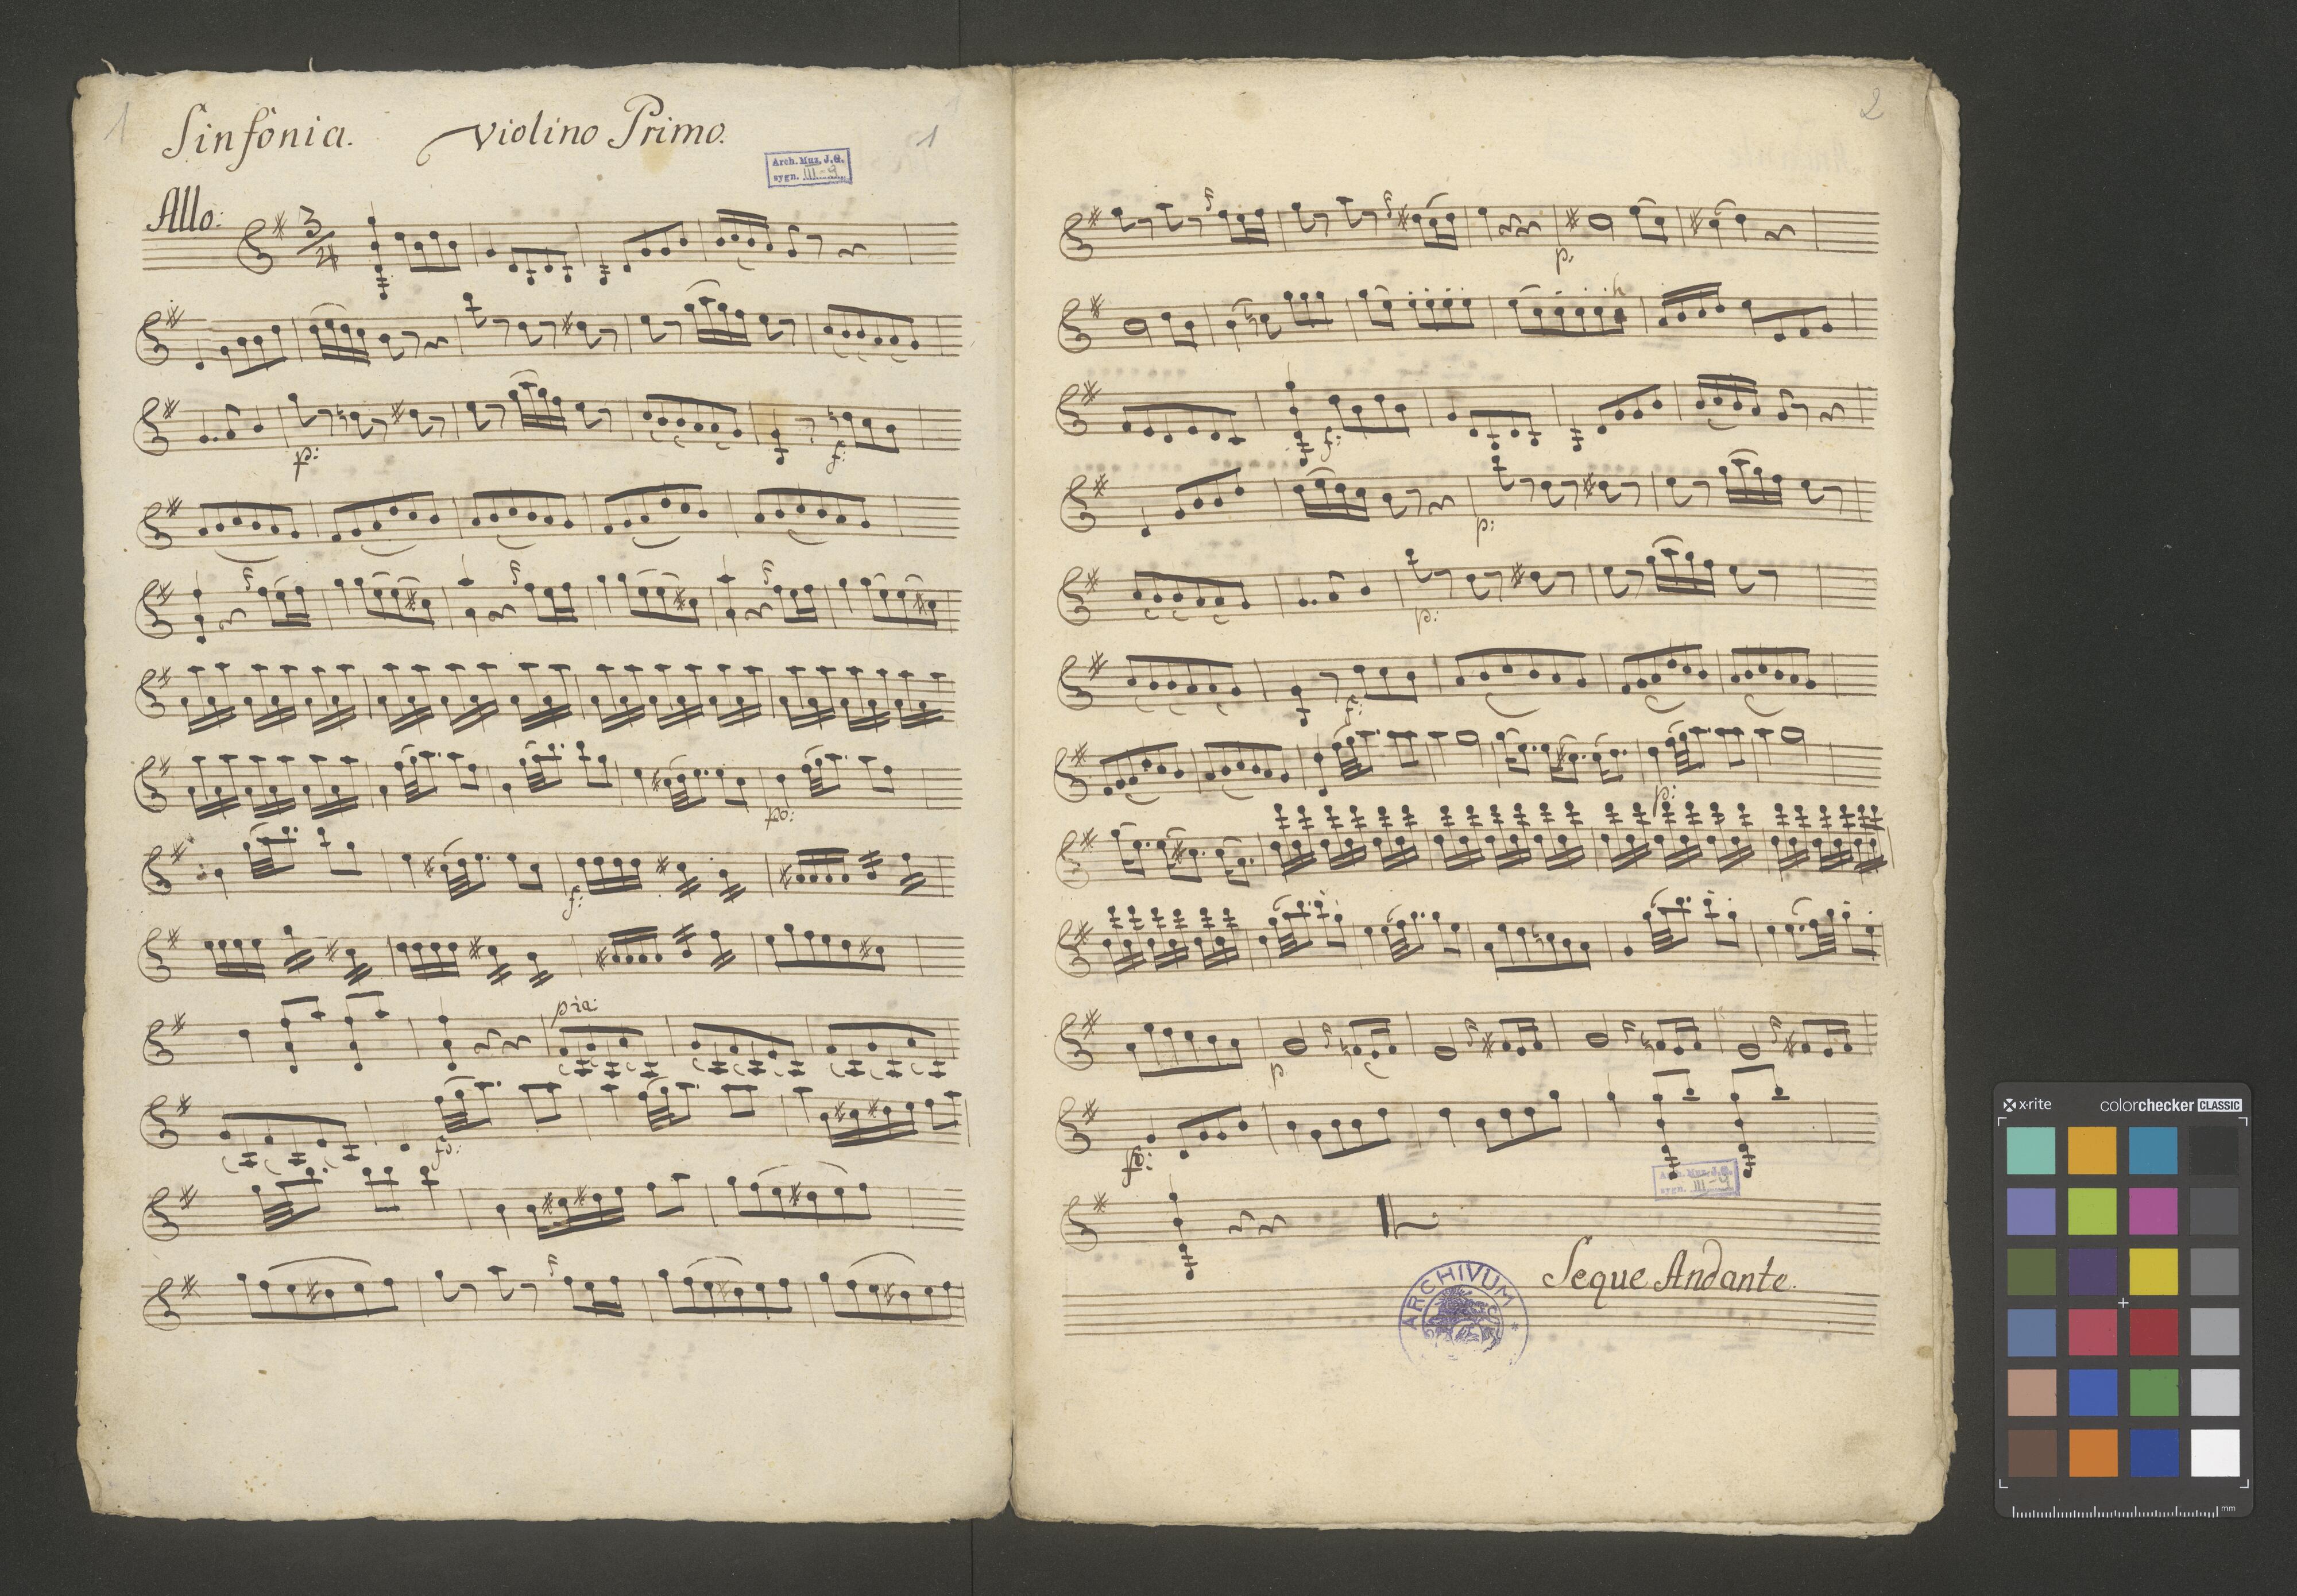 1
Sinfonia. Violino Primo.
1
1
Arch. Muz. J.G.
sygn. III-9
Allo:
3/4
p:
f:
po:
f:
pia:
fo:
2
p.
f:
p:
p:
f:
p:
p
fo:
Arch. Muz. J.G.
sygn. III-9
Seque Andante.
ARCHIVUM
x-rite
colorchecker CLASSIC
mm